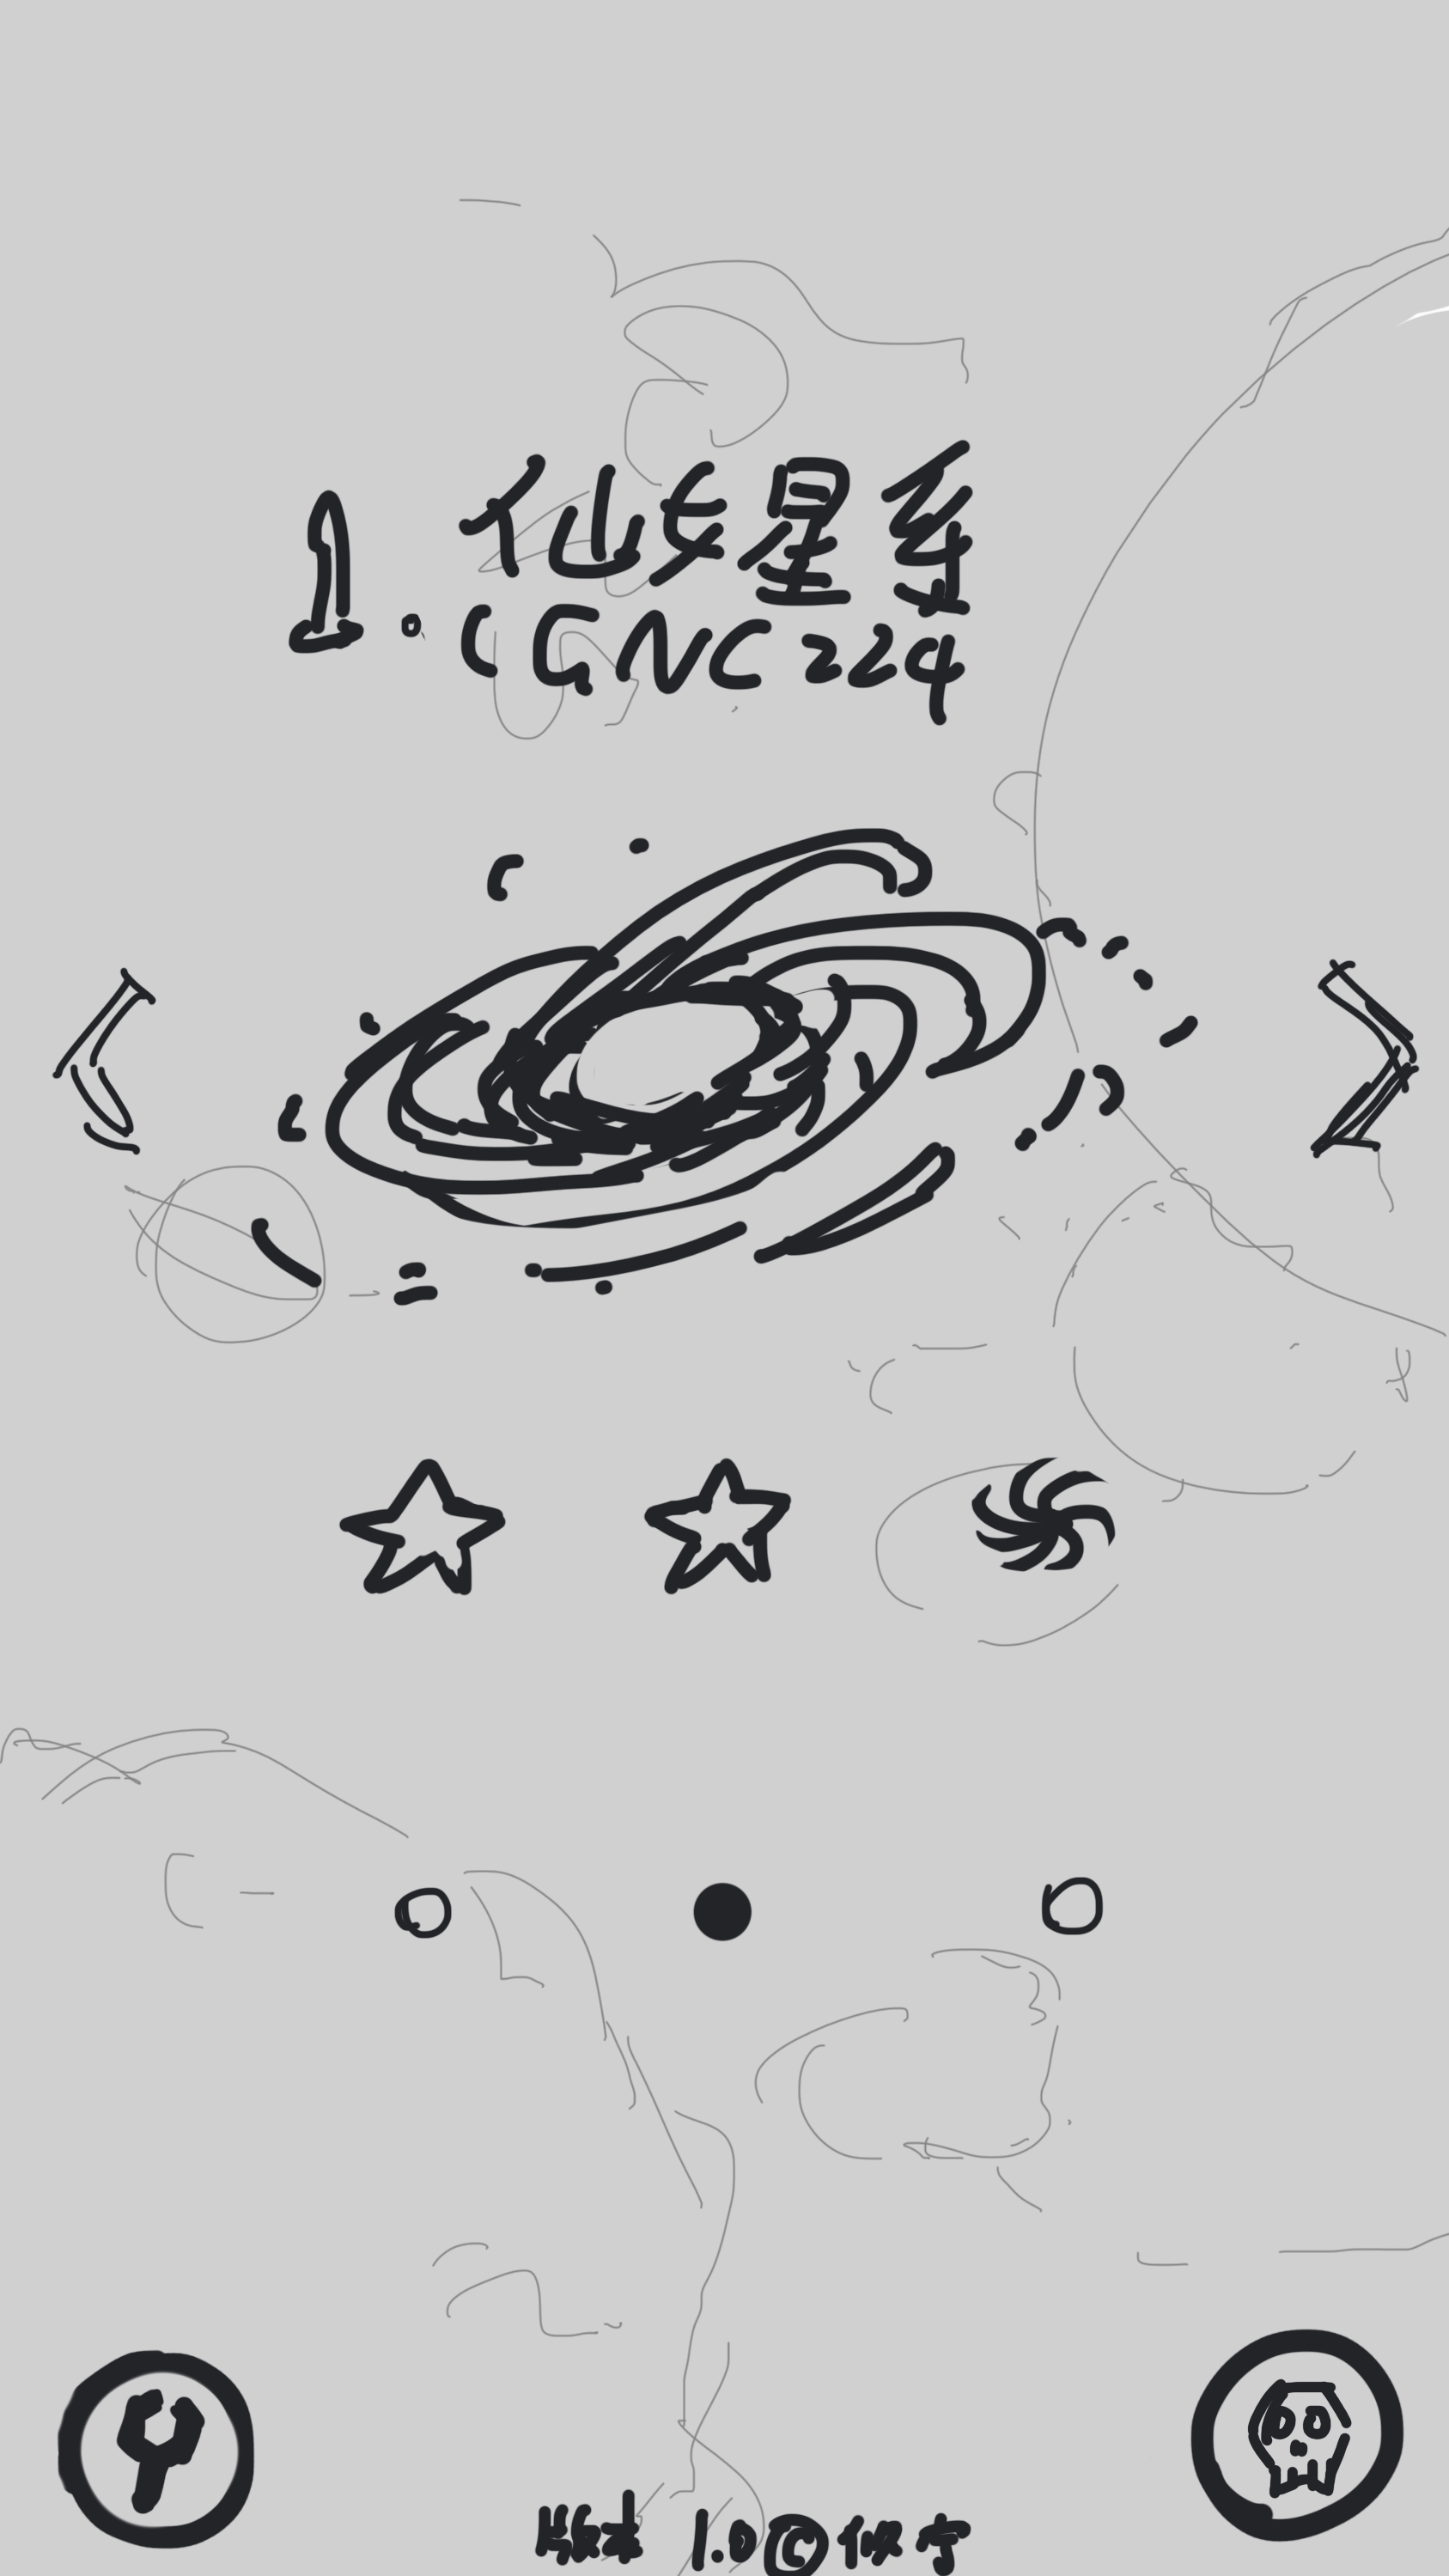 1. 仙女星系
(GNC224
版本 1.0©